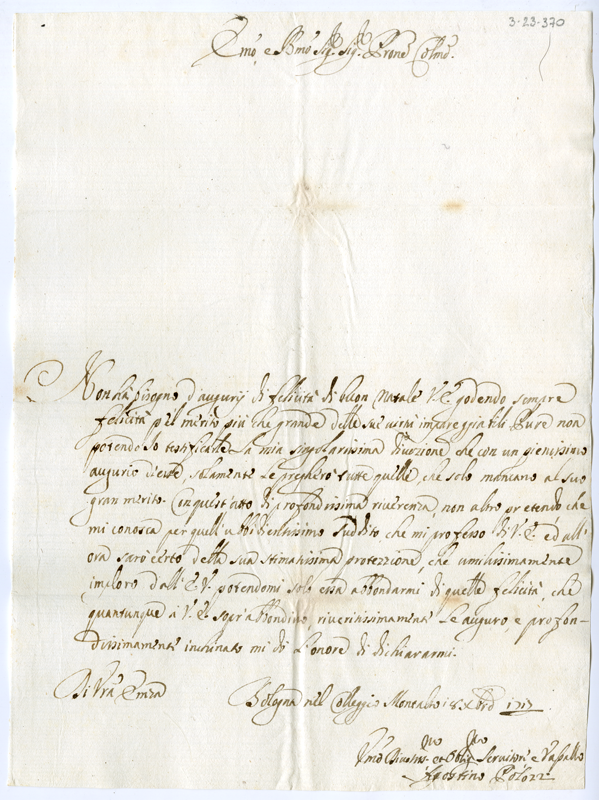 3-23-370
Emo, e Rmo Sigr Sigr Prone Colmo.
Non hà bisogno d'augurij di felicità di buon Natale V. E. godendo sempre
felicità p el merito più che grande delle sue virtù impareggiabili. Pure non
potendo Io testificarle la mia singolarissima divozione che con un pienissimo
augurio d'este, solamente Le pregherò tutte quelle, che solo mancano al suo
gran merito. Con quest'atto di profondissima riverenza non altro pretendo che
mi conosca per quell'ubbidientissimo Suddito, che mi professo di V. E. ed all'
ora sarò certo della sua stimatissima protezzione, che umilissimamente
imploro dall'E. V. potendomi solo essa abbondarmi di quelle felicità, che
quantunque à V. E. sopr'abbondino, riverentissimamente Le auguro, e profon-
dissimamente inchinato mi dò l'onore di dichiararmi.
Di Vra Emza
Bologna nel Collegio Montalto 18 Xbre 1717
Vmo Divotmo et Obblmo Servitore e Vassallo
Agostino